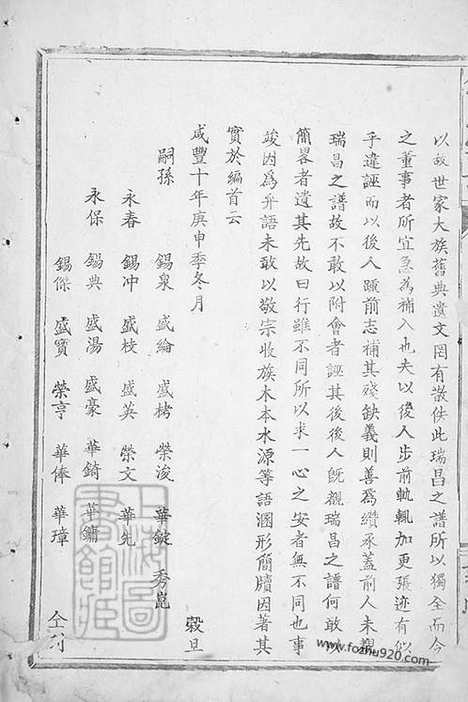 以故世家大族舊典遺文罔有散佚此瑞昌之譜所以獨全而今
之董事者所宜急為補入也夫以後人步前軌輒加更張迹有似
乎違誣而以後人踵前志補其殘缺義則善為纘承蓋前人未親
瑞昌之譜故不敢以附會者誣其後後人既親瑞昌之譜何敢以
簡畧者遺其先故曰行雖不同所以求一心之安者無不同也事
竣因為弁語未敢以敬宗收族木本水源等語溷形簡牘因著其
實於編首云
咸豐十年庚申季冬月 穀旦
嗣孫 錫泉 盛綸 盛栲 榮浚 華錠 秀崑
永春 錫冲 盛校 盛英 榮文 華先
永保 錫典 盛湯 盛豪 華錡 華鏞 仝刊
錫傑 盛寶 榮亨 華俸 華璋
上海圖書館
www.fozhu920.com